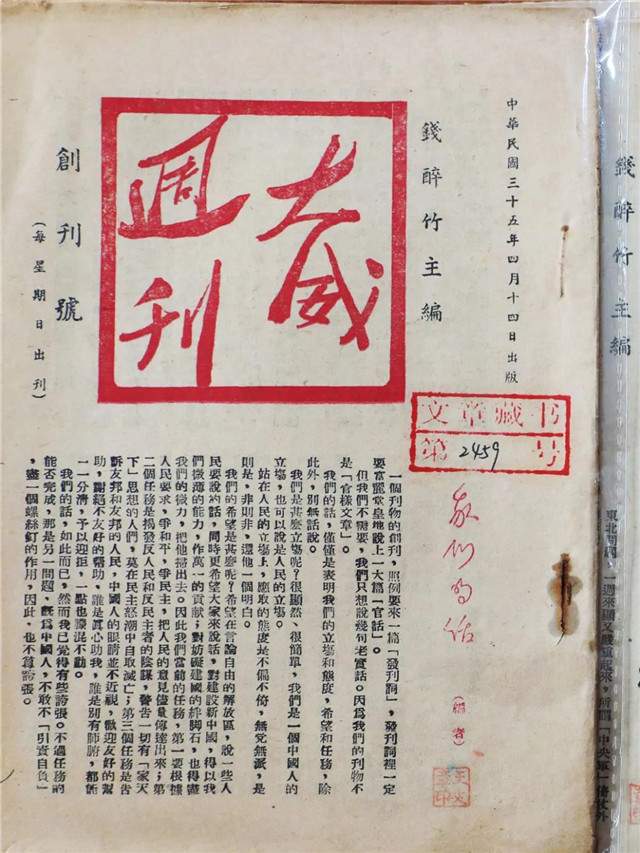 中華民國三十五年四月十四日出版
錢醉竹主編
大威
週刊
創刊號
(每星期日出刊)
文章藏书
第2459号
我們的話
(編者)
一個刊物的創刊,照例要來一篇「發刊詞」,發刊詞裡一定
要富麗堂皇地說上一大篇「官話」。
但我們不需要,我們只想說幾句老實話。因爲我們的刊物不
是「官樣文章」。
我們的話,僅僅是表明我們的立場和態度,希望和任務,除
此外,別無話說。
我們是甚麼立場呢?很顯然,很簡單,我們是一個中國人的
立場,也可以說是人民的立場。
站在人民的立場上,應取的態度是不偏不倚,無党無派,是
則是,非則非,還他一個明白。
我們的希望是甚麼呢?希望在言論自由的解放區,說一些人
民要說的話,同時更希望大家來說話,對建設新中國,得以我
們微薄的能力,作萬一的貢獻;對妨礙建國的絆脚石,也得盡
我們的微力,把他掃出去。因此我們當前的任務,第一要根據
人民要求,爭和平,爭民主,把人民的意見儘量傳達出來;第
二個任務是揭發反人民和反民主者的陰謀,警告一切有「家天
下」思想的人們,莫在民主怒潮中自取滅亡;第三個任務是告
訴友邦和友邦的人民,中國人的眼睛並不近視,歡迎友好的幫
助,謝絕不友好的幫助,誰是眞心助我,誰是別有肺腑,都能
一一分清,予以迎拒,一點也濛混不動。
我們的話,如此而已,然而我已覺得有些誇張。不過任務的
能否完成,那是另一問題,既爲中國人,不敢不「引責自負」
,盡一個螺絲釘的作用,因此,也不爲誇張。
錢醉竹主編